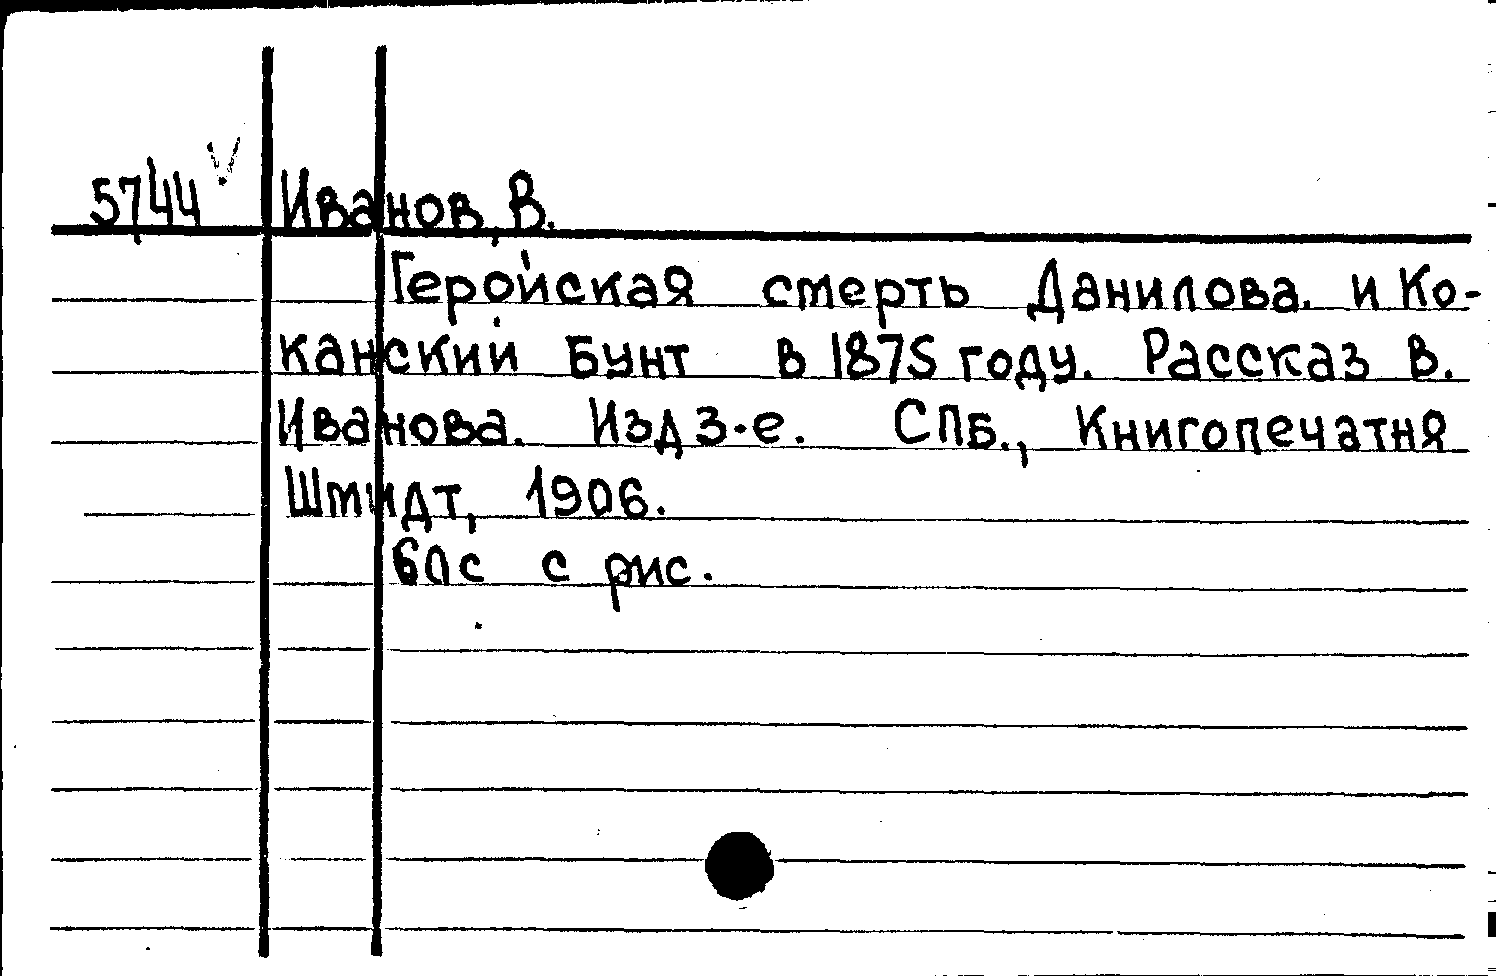 5744 V Иванов, В.
Геройская смерть Данилова. и Ко-
канский Бунт в 1875 году. Рассказ В.
Иванова. Изд 3-е. СПБ., Книгопечатня
Шмидт, 1906.
60с с рис.